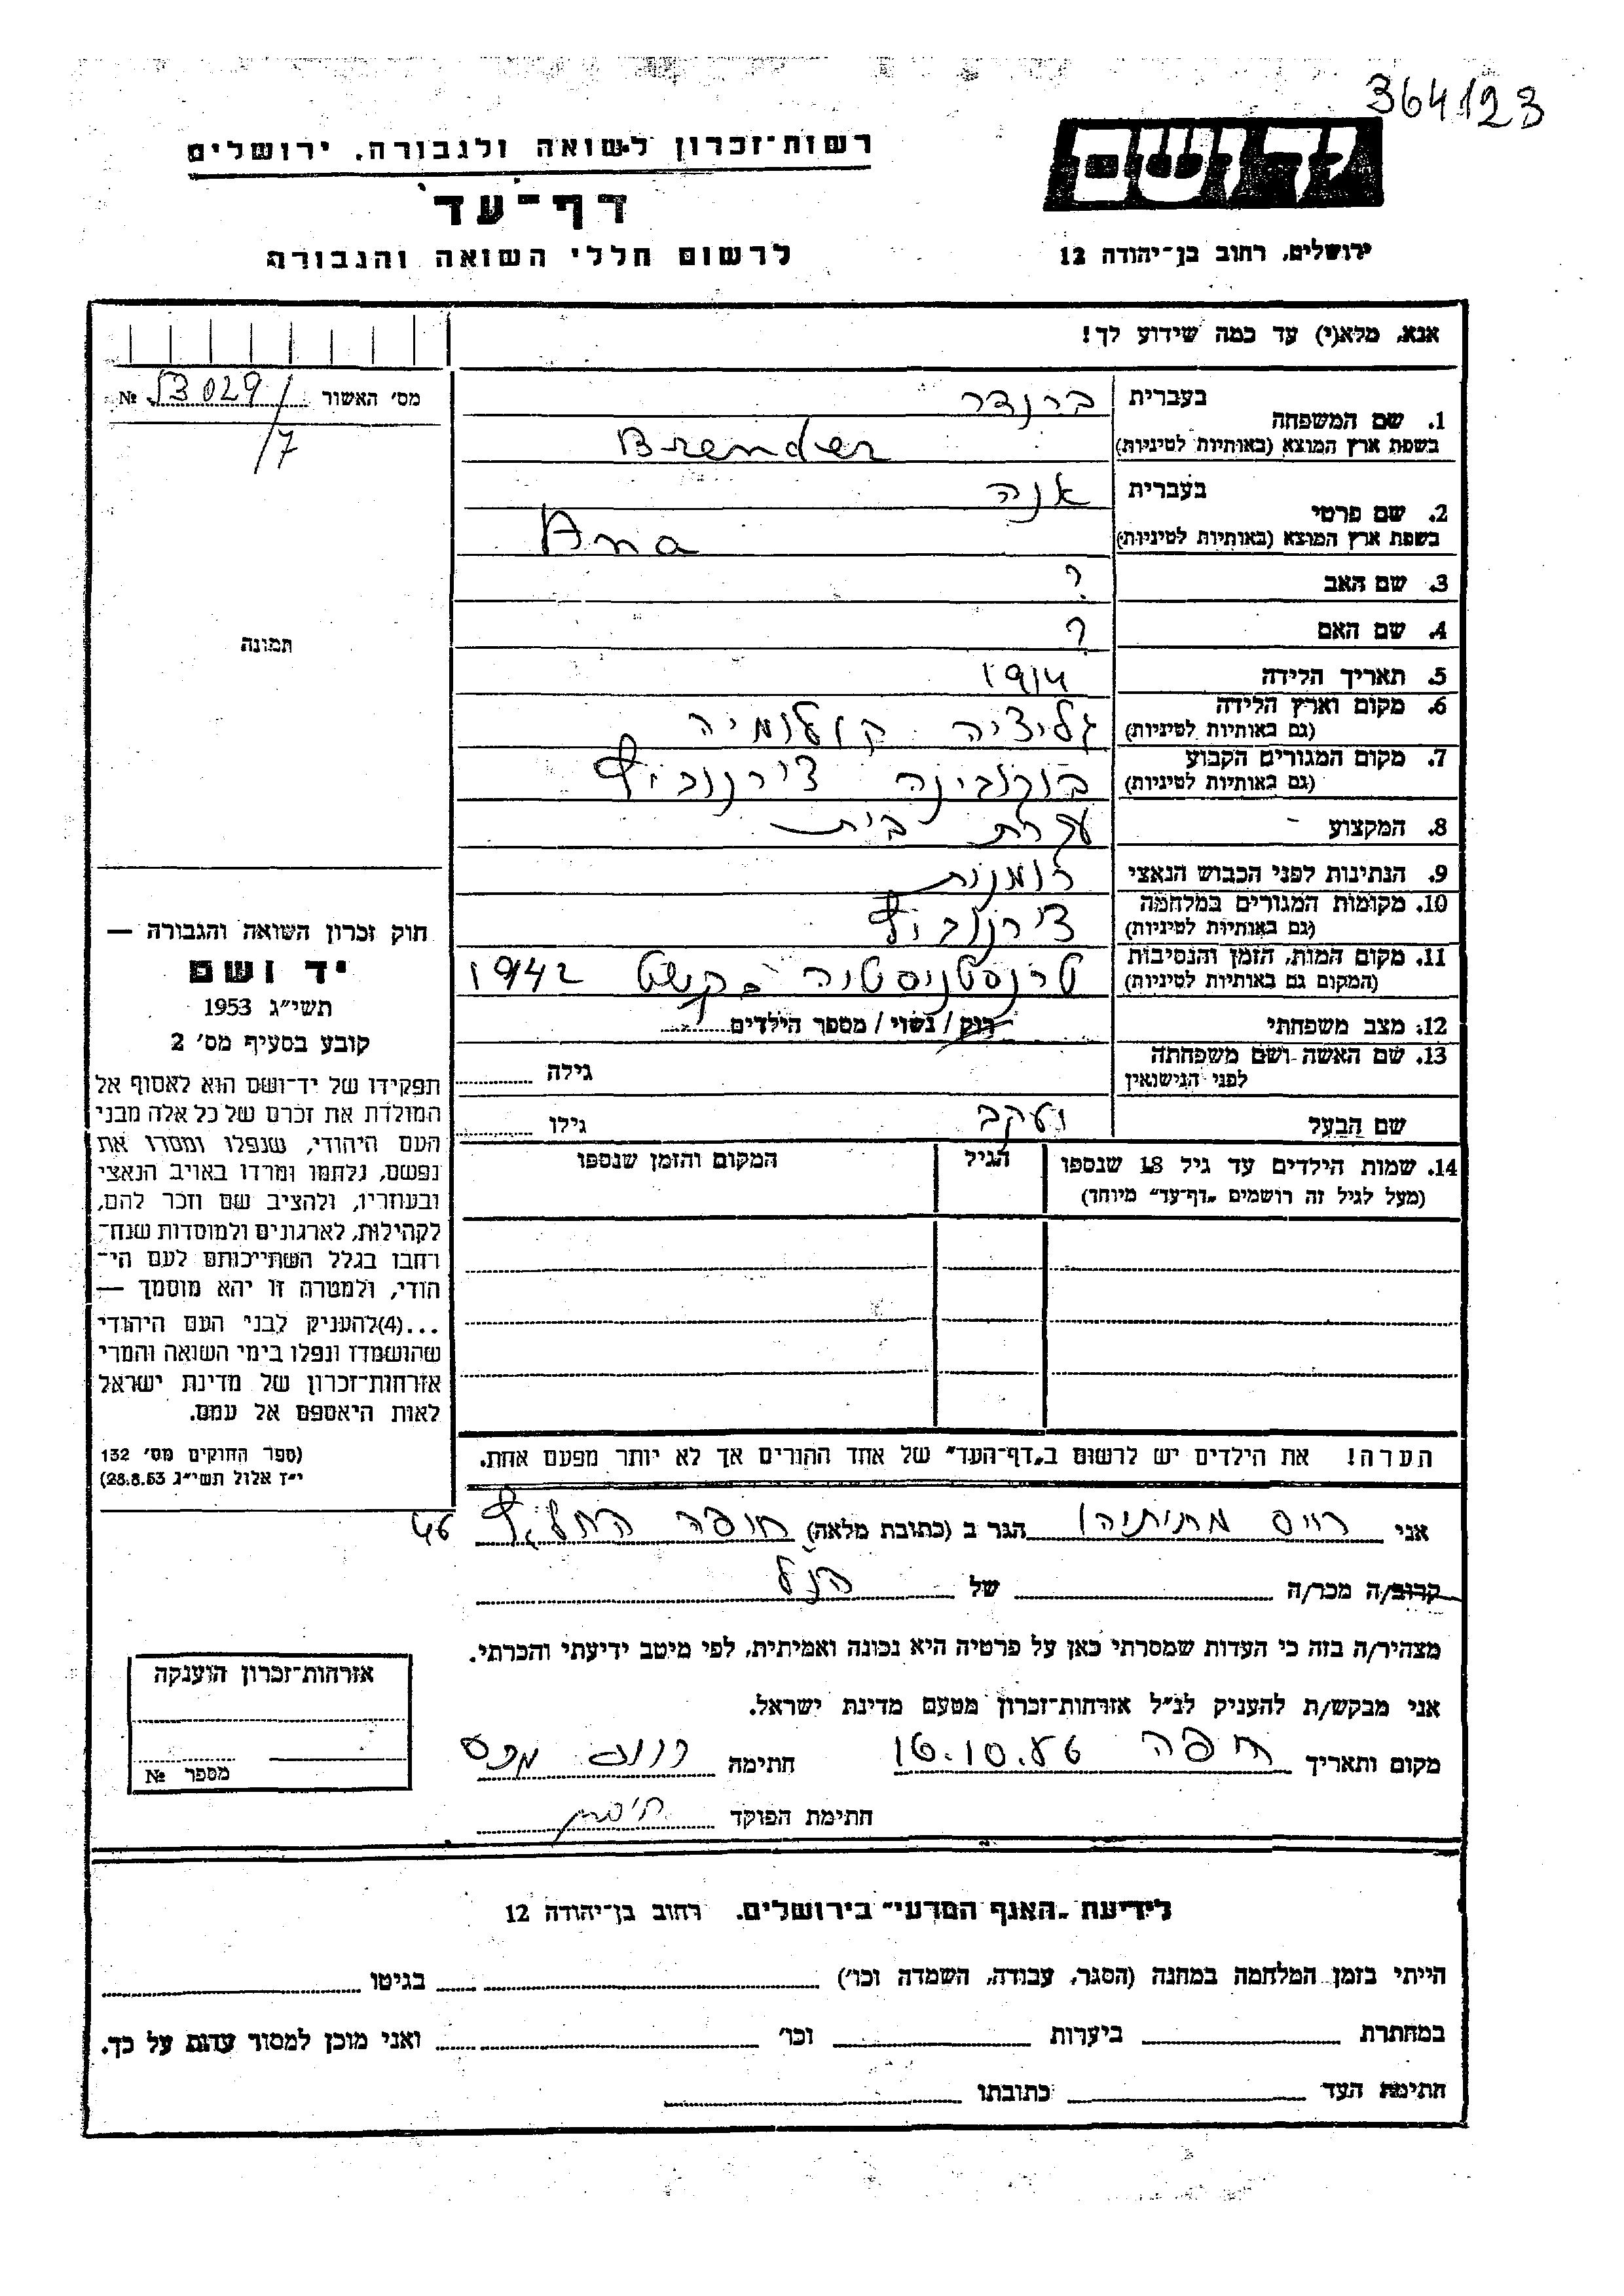 364123
יד ושם
רשות־זכרון לשואה ולגבורה, ירושלים
דף־עד
לרשום חללי השואה והגבורה
ירושלים, רחוב בן־יהודה 12
אנא, מלא(י) עד כמה שידוע לך!
מס׳ האשור № 53029/7
תמונה
1. שם המשפחה
בעברית ברנדר
בשפת ארץ המוצא (באותיות לטיניות) Brender
2. שם פרטי
בעברית אנה
בשפת ארץ המוצא (באותיות לטיניות) Ana
3. שם האב ?
4. שם האם ?
5. תאריך הלידה 1914
6. מקום וארץ הלידה גליציה קולומיה
(גם באותיות לטיניות)
7. מקום המגורים הקבוע בוקובינה צ׳רנוביץ
(גם באותיות לטיניות)
8. המקצוע עקרת בית
9. הנתינות לפני הכבוש הנאצי רומנית
10. מקומות המגורים במלחמה צ׳רנוביץ
(גם באותיות לטיניות)
11. מקום המות, הזמן והנסיבות טרנסניסטריה 1942
(המקום גם באותיות לטיניות)
12. מצב משפחתי רוק / נשוי / מספר הילדים
13. שם האשה ושם משפחתה
לפני הנישואין גילה
שם הבעל יעקב גילו
14. שמות הילדים עד גיל 18 שנספו הגיל המקום והזמן שנספו
(מעל לגיל זה רושמים „דף־עד״ מיוחד)
הערה! את הילדים יש לרשום ב„דף־העד״ של אחד ההורים אך לא יותר מפעם אחת.
חוק זכרון השואה והגבורה —
יד ושם
תשי״ג 1953
קובע בסעיף מס׳ 2
תפקידו של יד־ושם הוא לאסוף אל
המולדת את זכרם של כל אלה מבני
העם היהודי, שנפלו ומסרו את
נפשם, נלחמו ומרדו באויב הנאצי
ובעוזריו, ולהציב שם וזכר להם,
לקהילות, לארגונים ולמוסדות שנח־
רבו בגלל השתייכותם לעם הי־
הודי, ולמטרה זו יהא מוסמך —
...(4)להעניק לבני העם היהודי
שהושמדו ונפלו בימי השואה והמרי
אזרחות־זכרון של מדינת ישראל
לאות היאספם אל עמם.
(ספר החוקים מס׳ 132
י״ז אלול תשי״ג 28.8.53)
אני וייס מתיתיהו הגר ב (כתובת מלאה) חיפה החלוץ 46
קרוב/ה מכר/ה של הנ״ל
מצהיר/ה בזה כי העדות שמסרתי כאן על פרטיה היא נכונה ואמיתית, לפי מיטב ידיעתי והכרתי.
אני מבקש/ת להעניק לנ״ל אזרחות־זכרון מטעם מדינת ישראל.
מקום ותאריך חיפה חתימה
חתימת הפוקד
אזרחות־זכרון הוענקה
מספר №
לידיעת „האגף המדעי״ בירושלים, רחוב בן־יהודה 12
הייתי בזמן המלחמה במחנה (הסגר, עבודה, השמדה וכו׳) בגיטו
במחתרת ביערות וכו׳ ואני מוכן למסור עדות על כך.
חתימת העד כתובתו